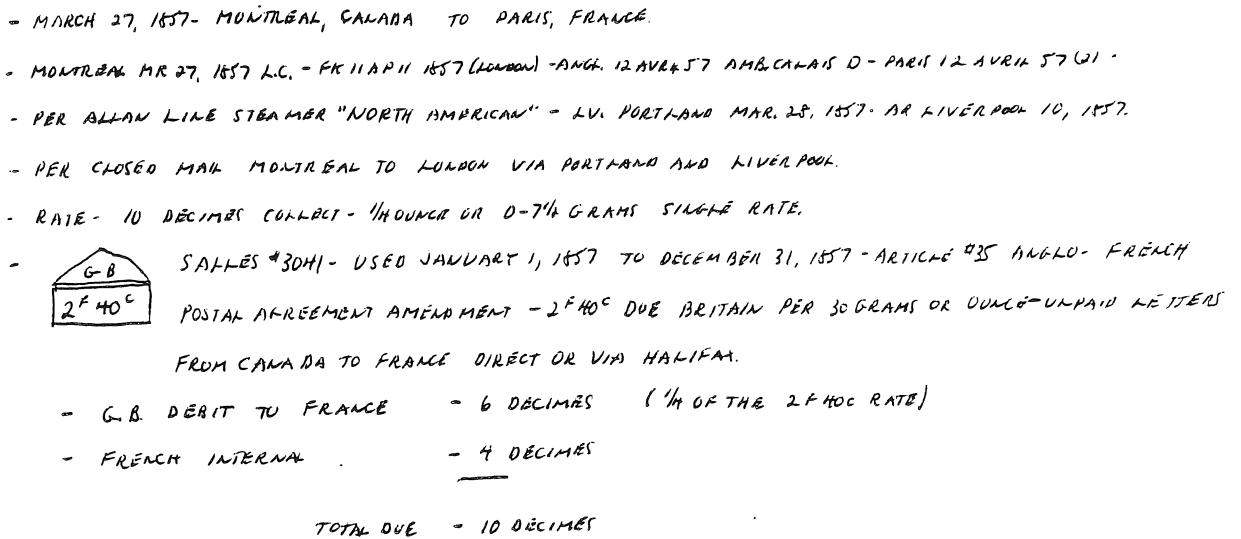 - MARCH 27, 1857- MONTREAL, CANADA TO PARIS, FRANCE.
- MONTREAL MR 27, 1857 L.C. - FK 11 AP 11 1857 (LONDON) - ANGL. 12 AVRIL 57 AMB. CALAIS D - PARIS 12 AVRIL 57 (2) -
- PER ALLAN LINE STEAMER "NORTH AMERICAN" - LV. PORTLAND MAR. 28, 1857- AR LIVERPOOL 10, 1857.
- PER CLOSED MAIL MONTREAL TO LONDON VIA PORTLAND AND LIVERPOOL.
- RATE - 10 DECIMES COLLECT - 1/4 OUNCE OR 0-7 1/2 GRAMS SINGLE RATE.
- G B
2F 40C
SALLES #3041 - USED JANUARY 1, 1857 TO DECEMBER 31, 1857 - ARTICLE #35 ANGLO- FRENCH
POSTAL AGREEMENT AMENDMENT - 2F 40C DUE BRITAIN PER 30 GRAMS OR OUNCE-UNPAID LETTERS
FROM CANADA TO FRANCE DIRECT OR VIA HALIFAX.
- G.B. DEBIT TO FRANCE - 6 DECIMES (1/4 OF THE 2F 40C RATE)
- FRENCH INTERNAL - 4 DECIMES
TOTAL DUE - 10 DECIMES